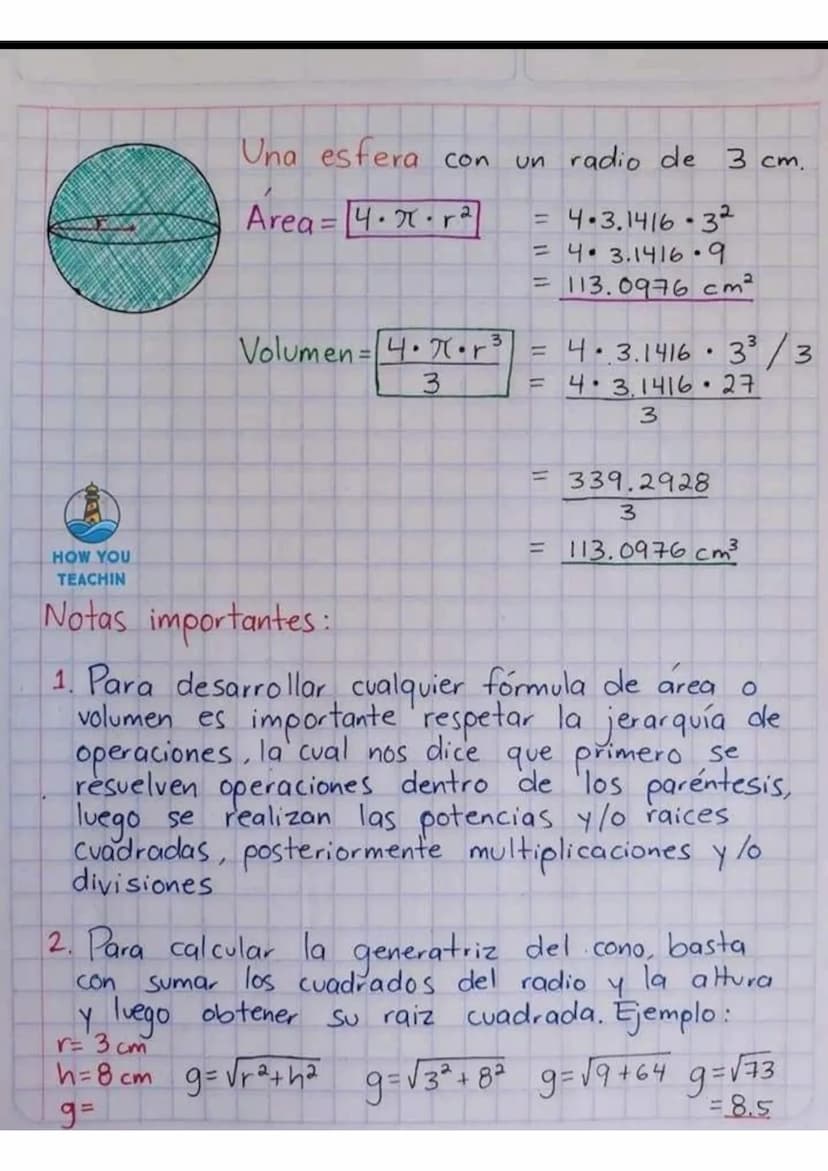 Una esfera con un radio de 3 cm.
Área = 4·π·r² = 4·3.1416·3²
= 4·3.1416·9
= 113.0976 cm²
Volumen = 4·π·r³ / 3 = 4·3.1416·3³/3
= 4·3.1416·27 / 3
= 339.2928 / 3
= 113.0976 cm³
r
HOW YOU
TEACHIN
Notas importantes:
1. Para desarrollar cualquier fórmula de área o
volumen es importante respetar la jerarquía de
operaciones, la cual nos dice que primero se
resuelven operaciones dentro de los paréntesis,
luego se realizan las potencias y/o raices
cuadradas, posteriormente multiplicaciones y/o
divisiones
2. Para calcular la generatriz del cono, basta
con sumar los cuadrados del radio y la altura
y luego obtener su raiz cuadrada. Ejemplo:
r= 3 cm
h=8 cm g=√r²+h² g=√3²+8² g=√9+64 g=√73
g= = 8.5